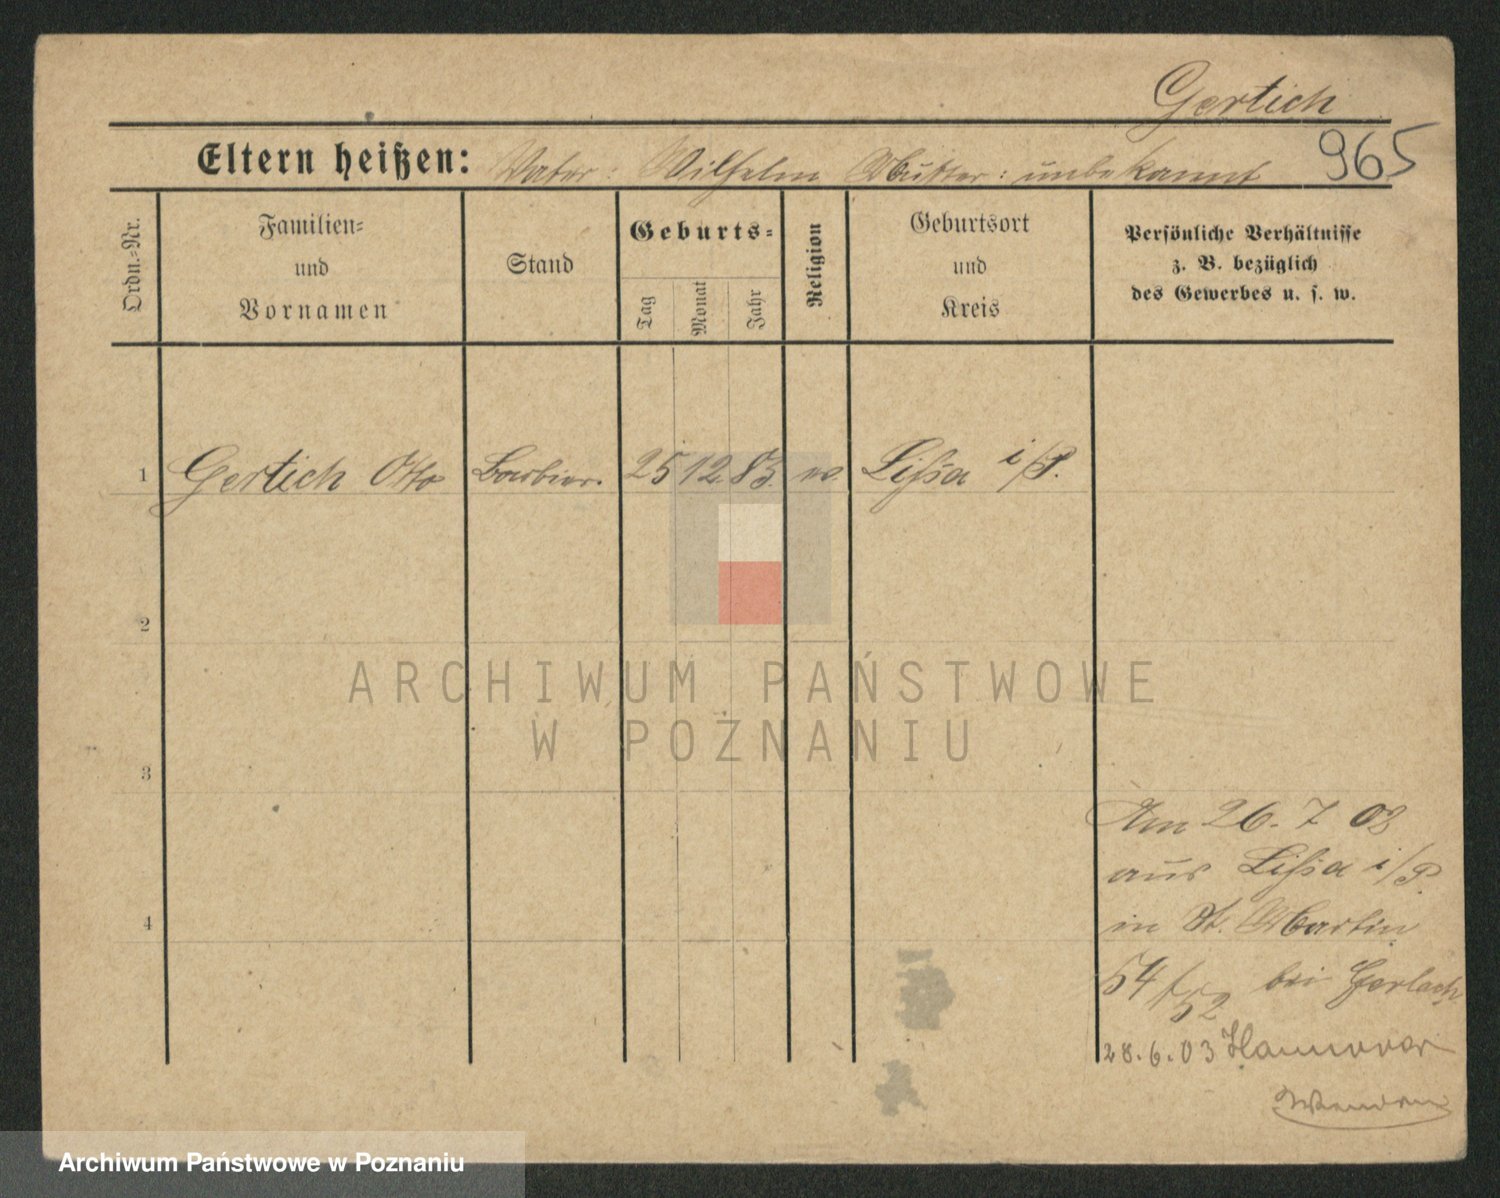 Gertich
965
Eltern heißen: Vater: Wilhelm Mutter: unbekannt
Ordn.-Nr.
Familien-
und
Vornamen
Stand
Geburts-
Tag
Monat
Jahr
Religion
Geburtsort
und
Kreis
Persönliche Verhältnisse
z. B. bezüglich
des Gewerbes u. s. w.
1 Gertich Otto Barbier. 25 12. 83. ev. Lissa i/P.
2
ARCHIWUM PAŃSTWOWE
W POZNANIU
3
Am 26. 7 02
aus Lissa i/P.
in St. Martin
4
54/52 bei Gerlach
28.6.03 Hannover
Archiwum Państwowe w Poznaniu